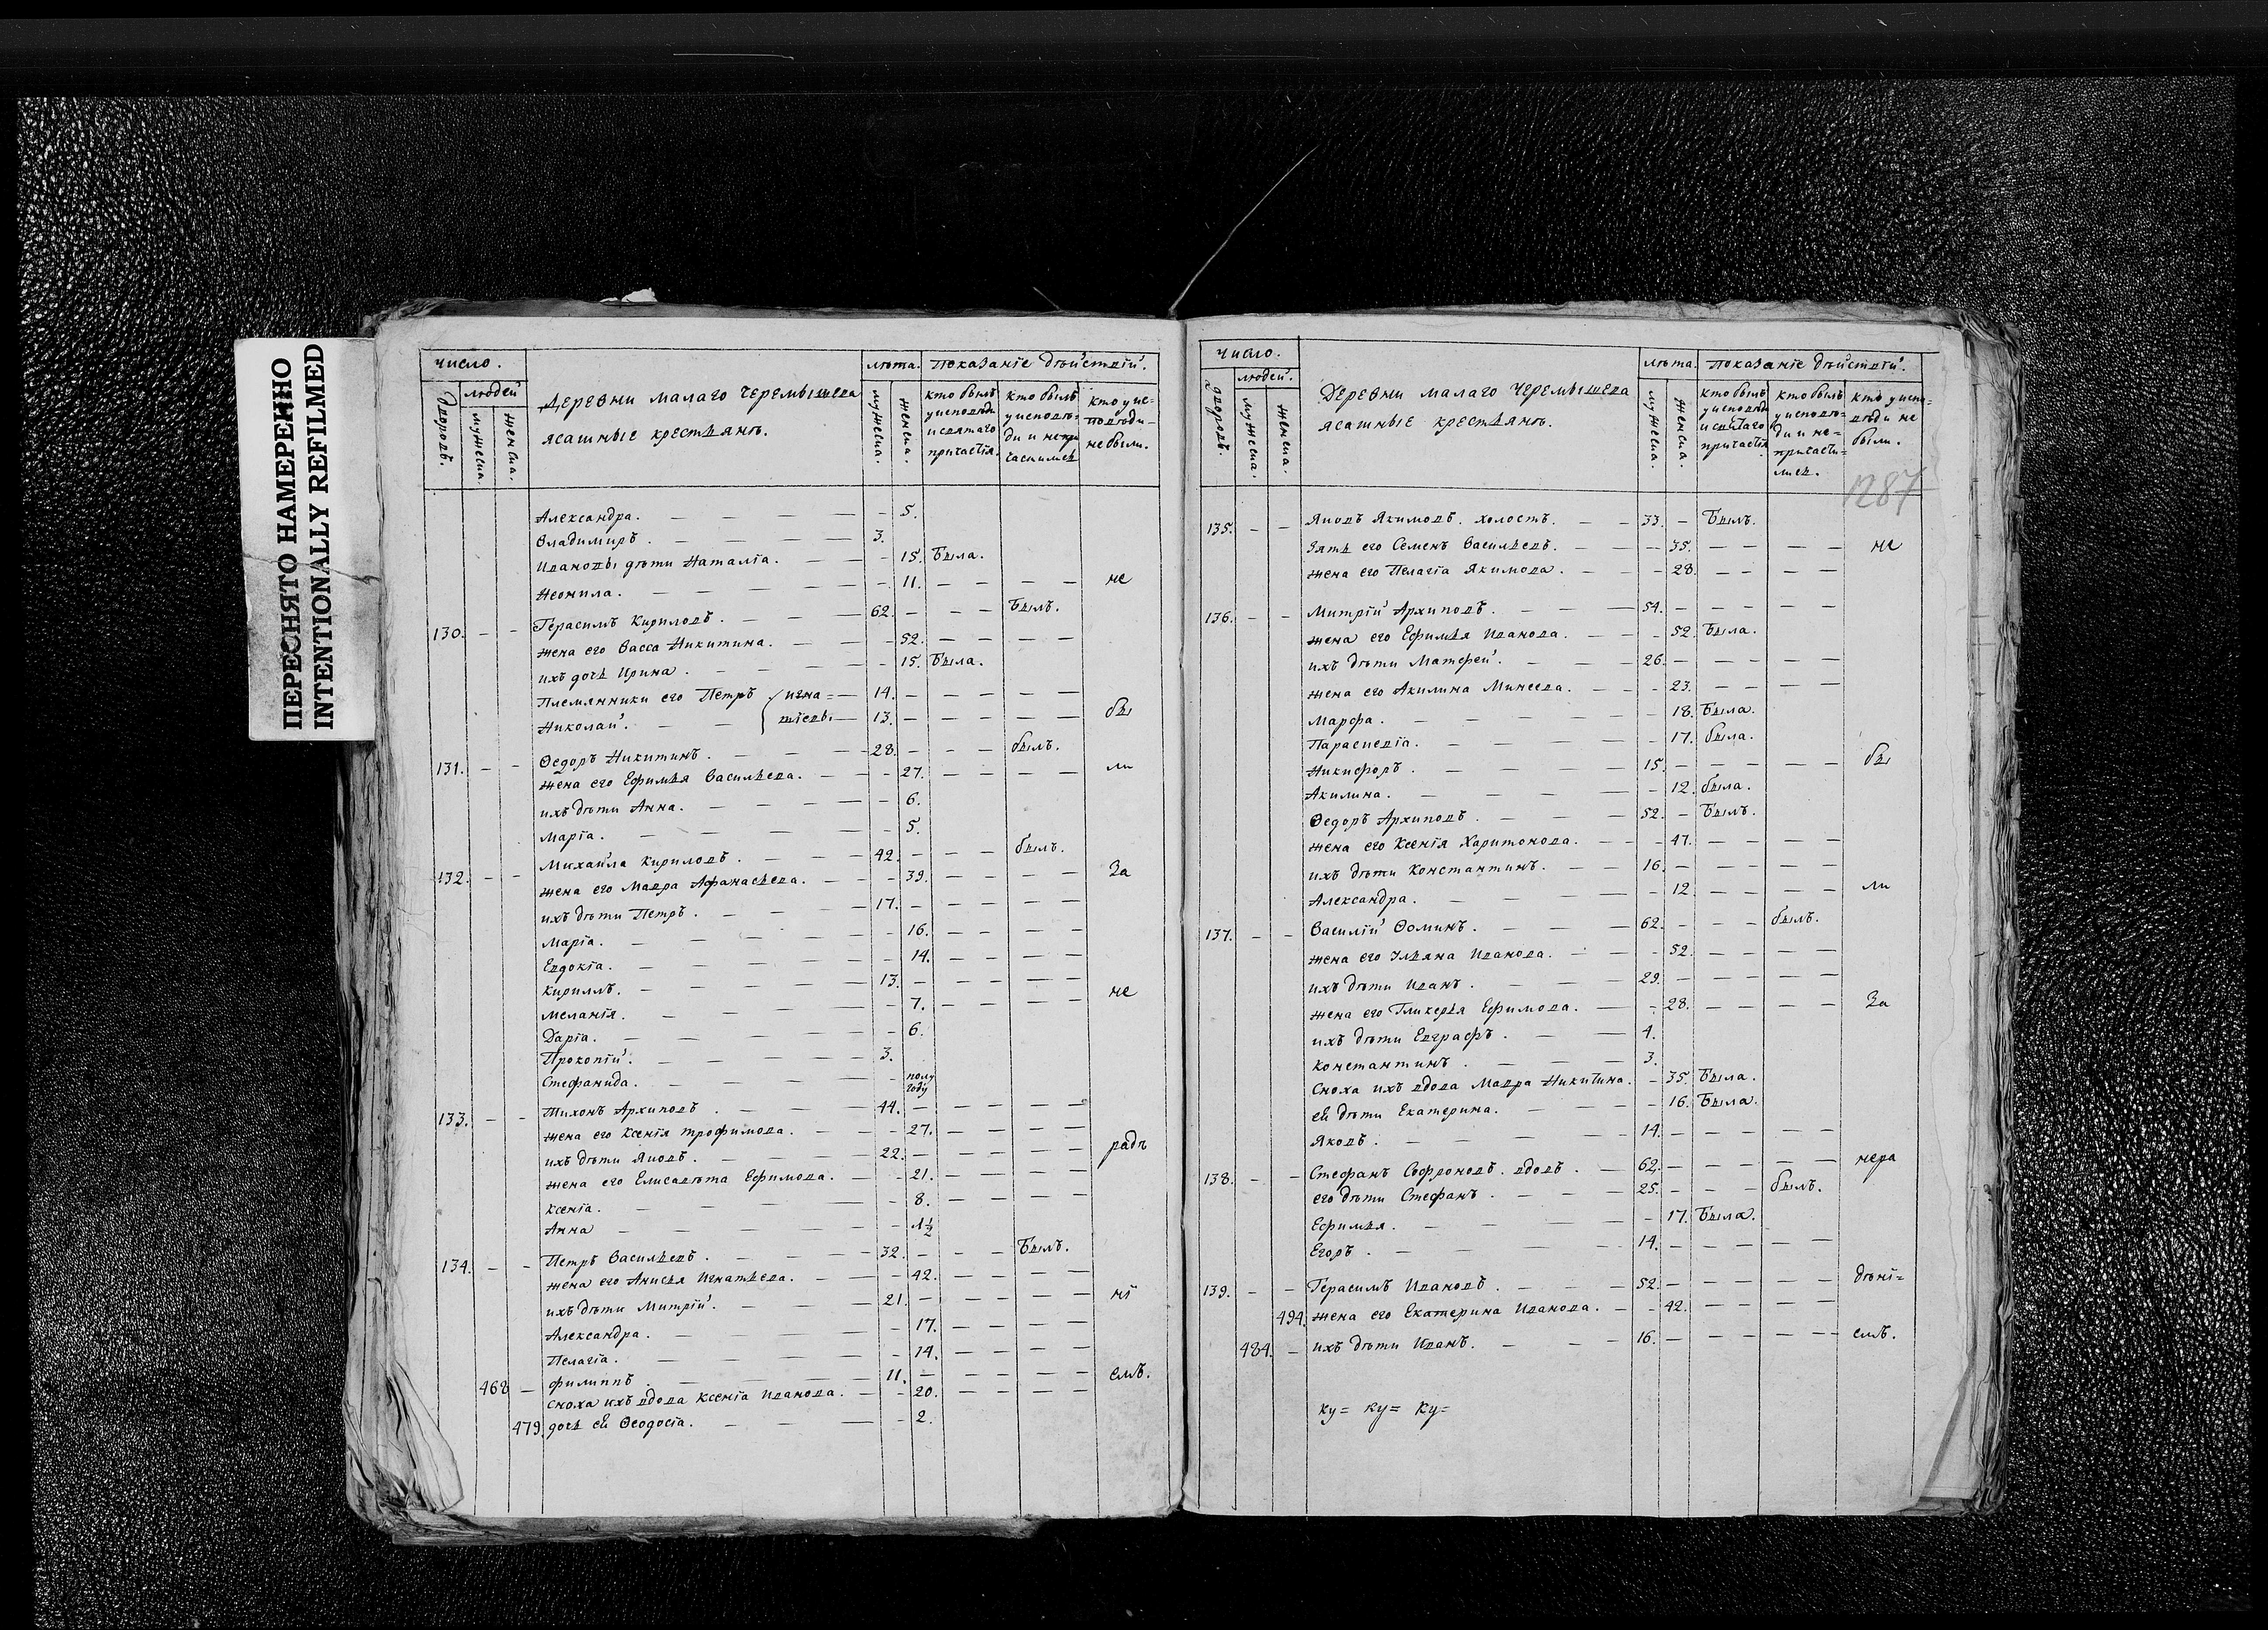 ПЕРЕСНЯТО НАМЕРЕННО
INTENTIONALLY REFILMED
число.
людей
дворовъ.
мужеска.
женска.
Деревни малаго Черемышева
ясашные крестьянъ.
лѣта.
мужеска.
женска.
показаніе дѣйствій.
кто былъ
у исповѣди
и святаго
причастія.
кто былъ
у исповѣ-
ди и непри
частился
кто у ис-
повѣди-
не были.
Александра. — 5.
Владимиръ. — 3.
Ивановы дѣти Наталіа. — 15. Была.
Неонила. — 11. — — — — не
130. — — Герасимъ Кириловъ. — 62. — — — Былъ.
жена его Васса Никитина. — 52. — — — —
ихъ дочь Ирина. — 15. Была.
Племянники его Петръ игна= — 14. — — — — —
Николай. — тіевы — 13. — — — — — бы
131. — — Ѳедоръ Никитинъ. — 28. — — — былъ.
жена его Ефимья Васильева. — 27. — — — — ли
ихъ дѣти Анна. — 6.
Маріа. — 5.
132. — — Михайла Кириловъ. — 42. — — — былъ.
жена его Мавра Афанасьева. — 39. — — — — За
ихъ дѣти Петръ. — 17. — — — — —
Маріа. — 16. — — — —
Евдокіа. — 14. — — — —
Кирилъ. — 13. — — — — —
Меланіа. — 7. — — — — не
Даріа. — 6.
Прокопій. — 3.
Стефанида. — полу
году
133. — — Тихонъ Архиповъ. — 44. — — — — —
жена его Ксеніа Трофимова. — 27. — — — —
ихъ дѣти Яковъ. — 22. — — — — — радѣ
жена его Елисавѣта Ефимова. — 21. — — — —
Ксеніа. — 8. — — — —
Анна — 1½
134. — — Петръ Васильевъ. — 32. — — — Былъ.
жена его Анисья Игнатьева. — 42. — — — —
ихъ дѣти Митрій. — 21. — — — — — ні
Александра. — 17. — — — —
Пелагіа. — 14. — — — —
468 — Филиппъ. — 11. — — — — — емъ.
сноха ихъ вдова Ксеніа Иванова. — 20. — — — —
479. дочь ей Ѳеодосіа. — 2.
число.
людей.
дворовъ.
мужеска.
женска.
Деревни малаго Черемышева
ясашные крестьянъ.
лѣта.
мужеска.
женска.
показаніе дѣйствій.
кто былъ
у исповѣди
и святаго
причастія.
кто былъ
у исповѣ-
ди и не=
причасти=
лися.
кто у испо=
вѣди не
были.
1287
135. — — Яковъ Якимовъ. холостъ. — 33. — Былъ.
Зять его Семенъ Васильевъ. — 35. — — — — не
жена его Пелагіа Якимова. — 28. — — — —
136. — — Митрій Архиповъ. — 54. — — — — —
жена его Ефимья Иванова. — 52. Была.
ихъ дѣти Матфей. — 26. — — — — —
жена его Акилина Минеева. — 23. — — — —
Марфа. — 18. Была.
Параскевіа. — 17. была.
Никифоръ. — 15. — — — — — бы
Акилина. — 12. была.
Ѳедоръ Архиповъ. — 52. — Былъ.
жена его Ксеніа Харитонова. — 47. — — — —
ихъ дѣти Константинъ. — 16. — — — — —
Александра. — 12. — — — — ли
137. — — Василій Ѳоминъ. — 62. — — — былъ.
жена его Ульяна Иванова. — 52. — — — —
ихъ дѣти Иванъ. — 29. — — — — —
жена его Гликерья Ефимова. — 28. — — — — За
ихъ дѣти Евграфъ. — 4.
Константинъ. — 3.
Сноха ихъ вдова Мавра Никитина. — 35. Была.
ей дѣти Екатерина. — 16. Была.
Яковъ. — 14. — — — — —
138. — — Стефанъ Софроновъ. вдовъ. — 62. — — — — — нера
его дѣти Стефанъ. — 25. — — — былъ.
Ефимья. — 17. Была.
Егоръ. — 14. — — — — —
139. — — Герасимъ Ивановъ. — 52. — — — — — дѣні=
494. жена его Екатерина Иванова. — 42. — — — —
484. — ихъ дѣти Иванъ. — 16. — — — — — емъ.
ку= ку= ку=